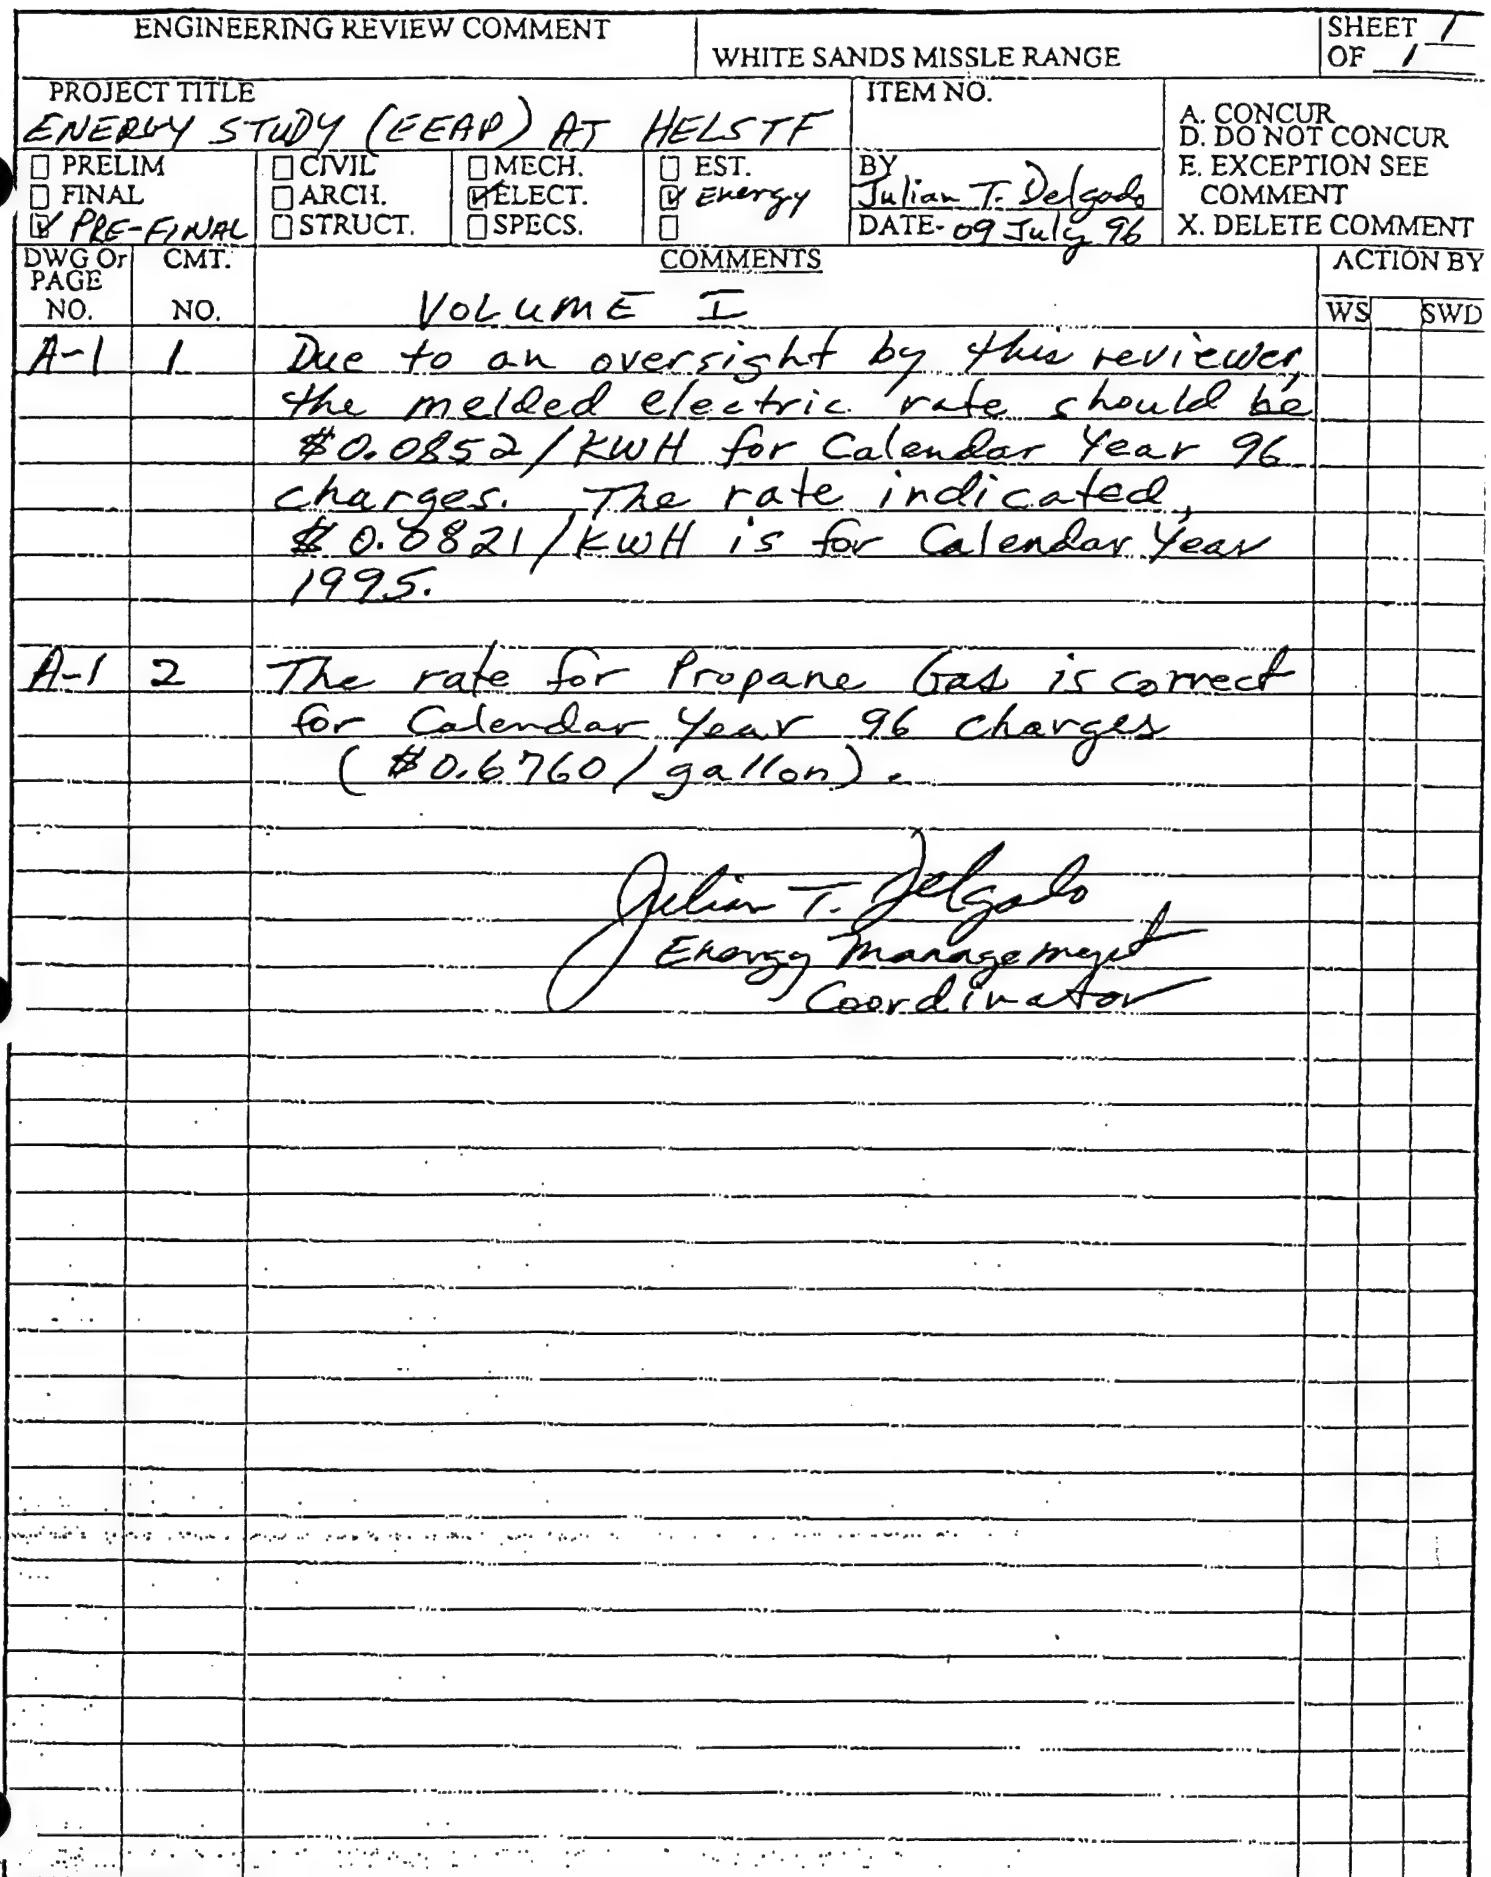 ENGINEERING REVIEW COMMENT
WHITE SANDS MISSLE RANGE
SHEET 1
OF 1
PROJECT TITLE
ENERGY STUDY (EEAP) AT HELSTF
ITEM NO.
A. CONCUR
D. DO NOT CONCUR
E. EXCEPTION SEE
COMMENT
X. DELETE COMMENT
PRELIM
FINAL
PRE-FINAL
CIVIL
ARCH.
STRUCT.
MECH.
ELECT.
SPECS.
EST.
Energy
BY
Julian T. Delgado
DATE- 09 July 96
DWG Or
PAGE
NO.
CMT.
NO.
COMMENTS
ACTION BY
WS SWD
VOLUME I
A-1 1 Due to an oversight by this reviewer,
the melded electric rate should be
$0.0852/KWH for Calendar Year 96
charges. The rate indicated,
$0.0821/KWH is for Calendar Year
1995.
A-1 2 The rate for Propane Gas is correct
for Calendar Year 96 charges
($0.6760/gallon).
Julian T. Delgado
Energy Management
Coordinator